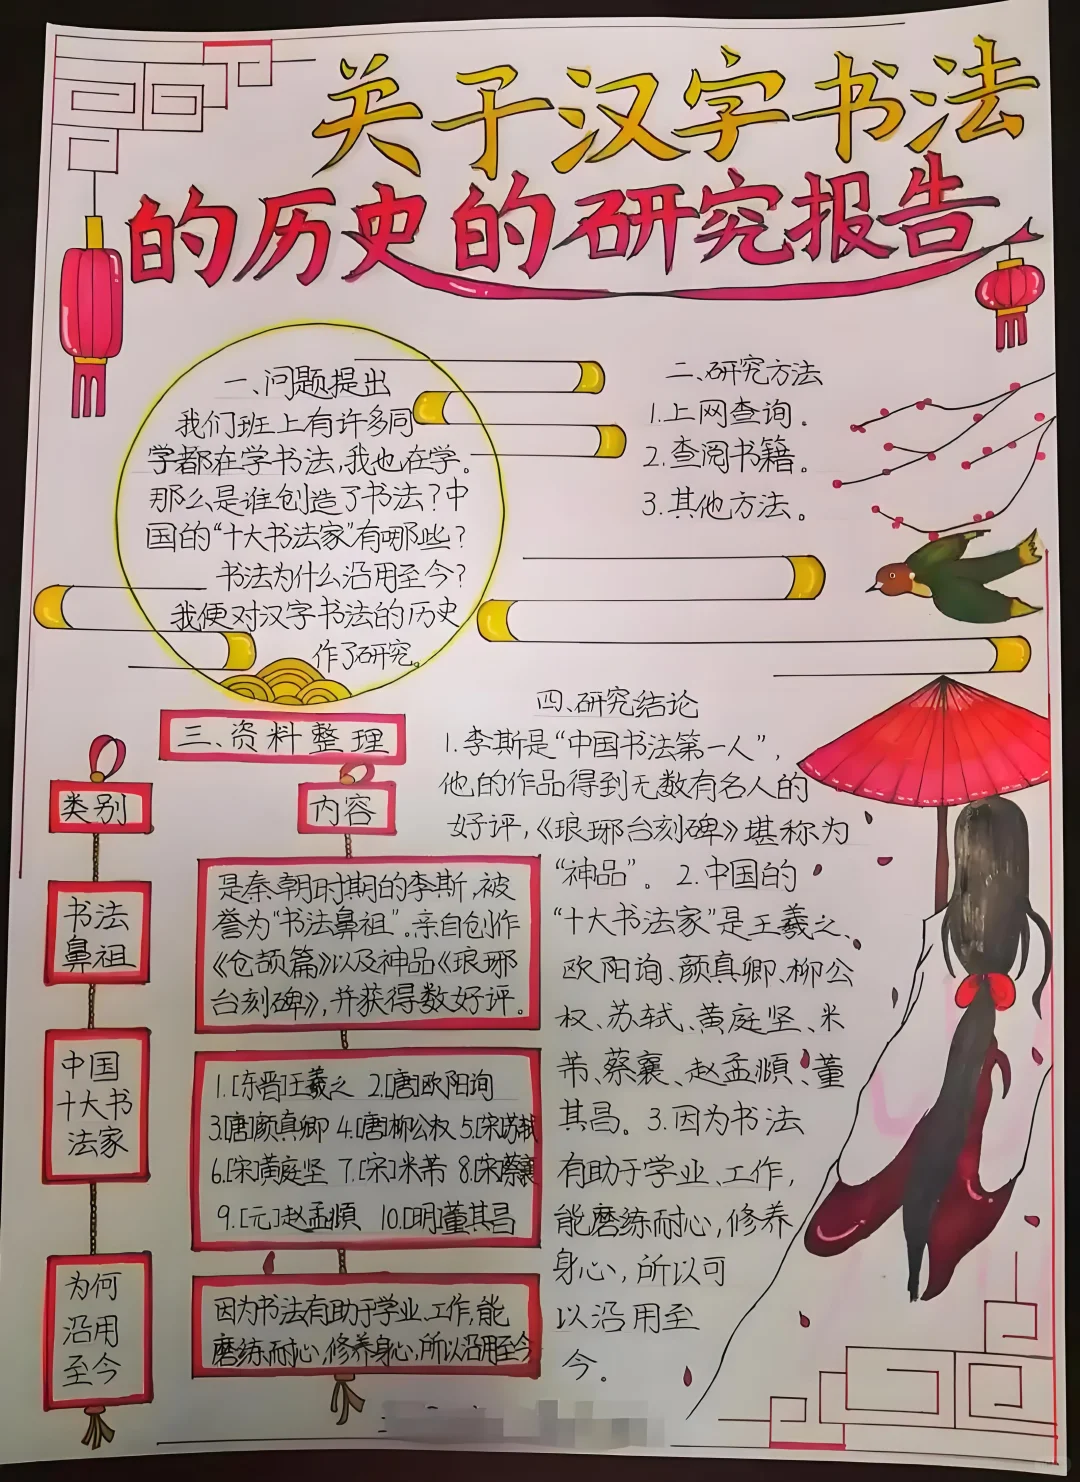 关于汉字书法
的历史的研究报告
一、问题提出
我们班上有许多同
学都在学书法,我也在学。
那么是谁创造了书法?中
国的“十大书法家”有哪些?
书法为什么沿用至今?
我便对汉字书法的历史
作了研究。
二、研究方法
1.上网查询。
2.查阅书籍。
3.其他方法。
三、资料整理
类别
内容
书法
鼻祖
是秦朝时期的李斯,被
誉为“书法鼻祖”。亲自创作
《仓颉篇》以及神品《琅琊
台刻碑》,并获得数好评。
中国
十大书
法家
1.[东晋]王羲之 2.[唐]欧阳询
3.[唐]颜真卿 4.[唐]柳公权 5.[宋]苏轼
6.[宋]黄庭坚 7.[宋]米芾 8.[宋]蔡襄
9.[元]赵孟頫 10.[明]董其昌
为何
沿用
至今
因为书法有助于学业、工作,能
磨练耐心,修养身心,所以沿用至今
四、研究结论
1.李斯是“中国书法第一人”,
他的作品得到无数有名人的
好评,《琅琊台刻碑》堪称为
“神品”。2.中国的
“十大书法家”是王羲之、
欧阳询、颜真卿、柳公
权、苏轼、黄庭坚、米
芾、蔡襄、赵孟頫、董
其昌。3.因为书法
有助于学业、工作,
能磨练耐心,修养
身心,所以可
以沿用至
今。